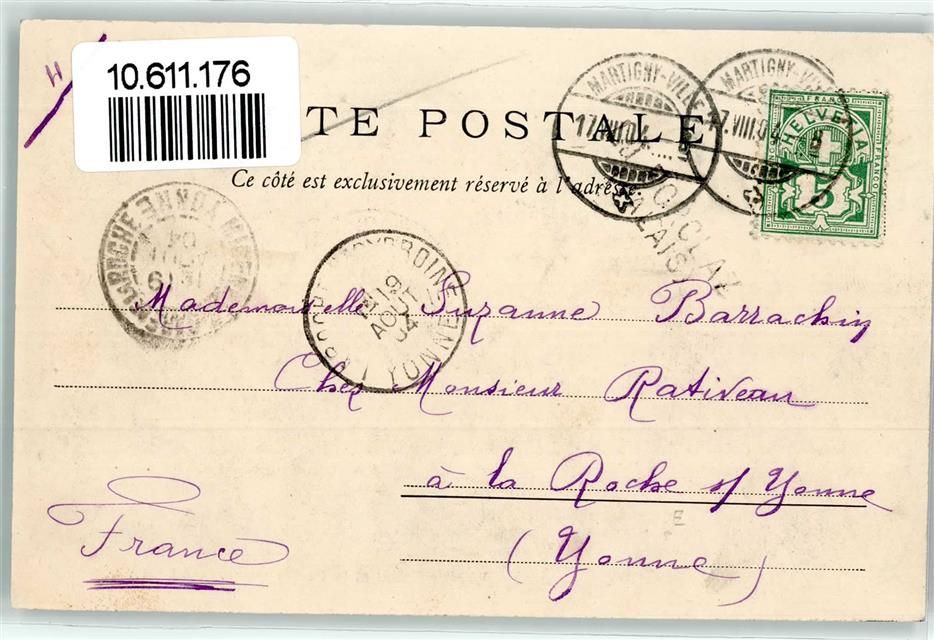 10.611.176
TE POSTALE
Ce côté est exclusivement réservé à l'adresse.
MARTIGNY-VILLE
17.VIII.04
MARTIGNY-VILLE
17.VIII.04
(VALAIS)
FRANCO
HELVETIA
FRANCO
5
LAROCHE YONNE
AOUT
04
19
AOUT
04
YONNE
Mademoiselle Suzanne Barrachin
Chez Monsieur Rativeau
à la Roche s/ Yonne
(Yonne)
France
H
E